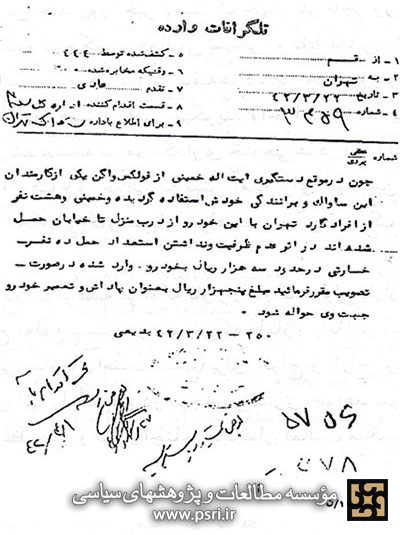 تلگرافات وارده
۱ - از قم
۲ - به تهران
۳ - تاریخ ۴۲/۳/۲۲
۴ - شماره
۵ - کشف شده توسط ۴۴۴
۶ - وقتیکه مخابره شده ۰۰
۷ - تقدم عادی
۸ - قسمت اقدام کننده اداره کل
۹ - برای اطلاع باداره
شماره
چون در موقع دستگیری ایت اله خمینی از فولکس واگن یکی از کارمندان
این ساواک و برانندگی خودش استفاده گردیده و خمینی و هشت نفر
از افراد گارد تهران با این خودرو از درب منزل تا خیابان حمل
شده اند در اثر عدم ظرفیت و نداشتن استعداد حمل ده نفر
خسارتی در حدود سه هزار ریال بخودرو وارد شده در صورت
تصویب مقرر فرمائید مبلغ پنجهزار ریال بعنوان پاداش و تعمیر خودرو
جهت وی حواله شود ۰
۲۵۰ - ۴۲/۳/۲۲ بدیعی
۷۸
مؤسسه مطالعات و پژوهشهای سیاسی
www.psri.ir